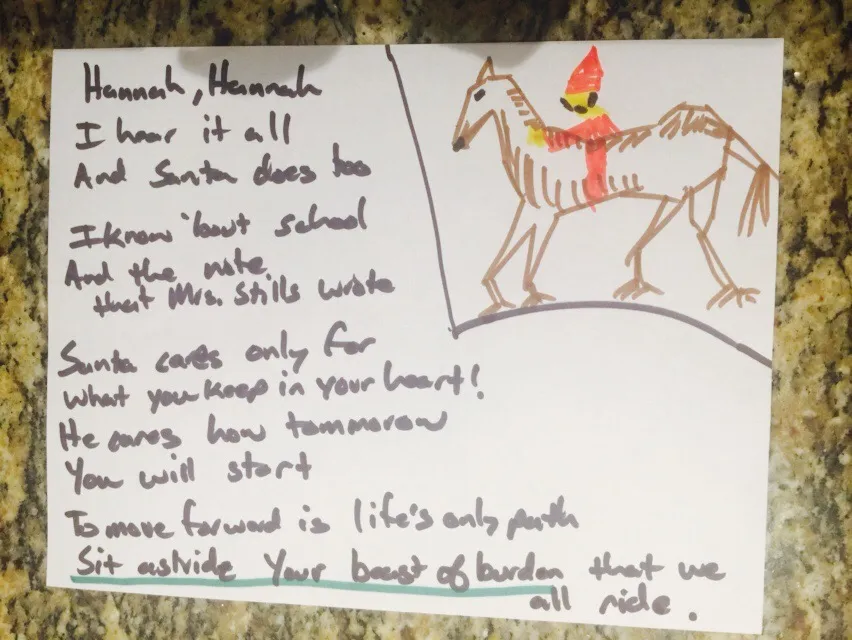 Hannah, Hannah
I hear it all
And Santa does too
I know 'bout school
And the note
that Mrs. Stills wrote
Santa cares only for
what you keep in your heart!
He cares how tommorow
You will start
To move forward is life's only path
Sit astride Your beast of burden that we
all ride.